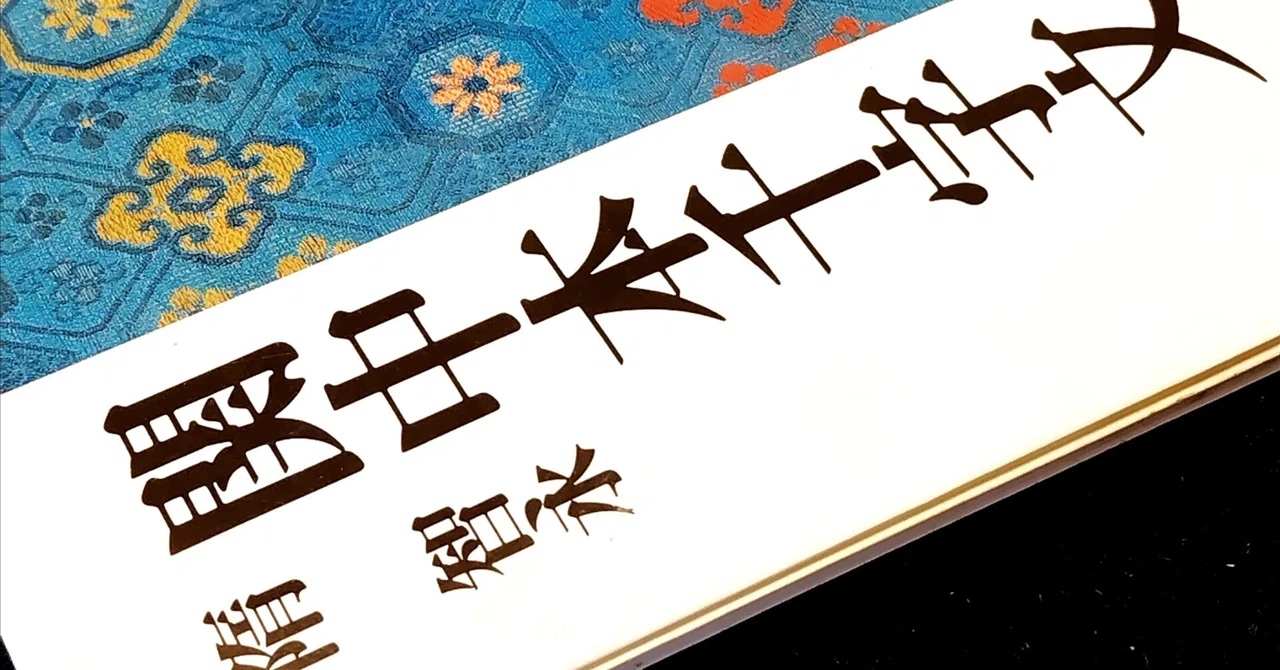 關中本千字文
隋 智永